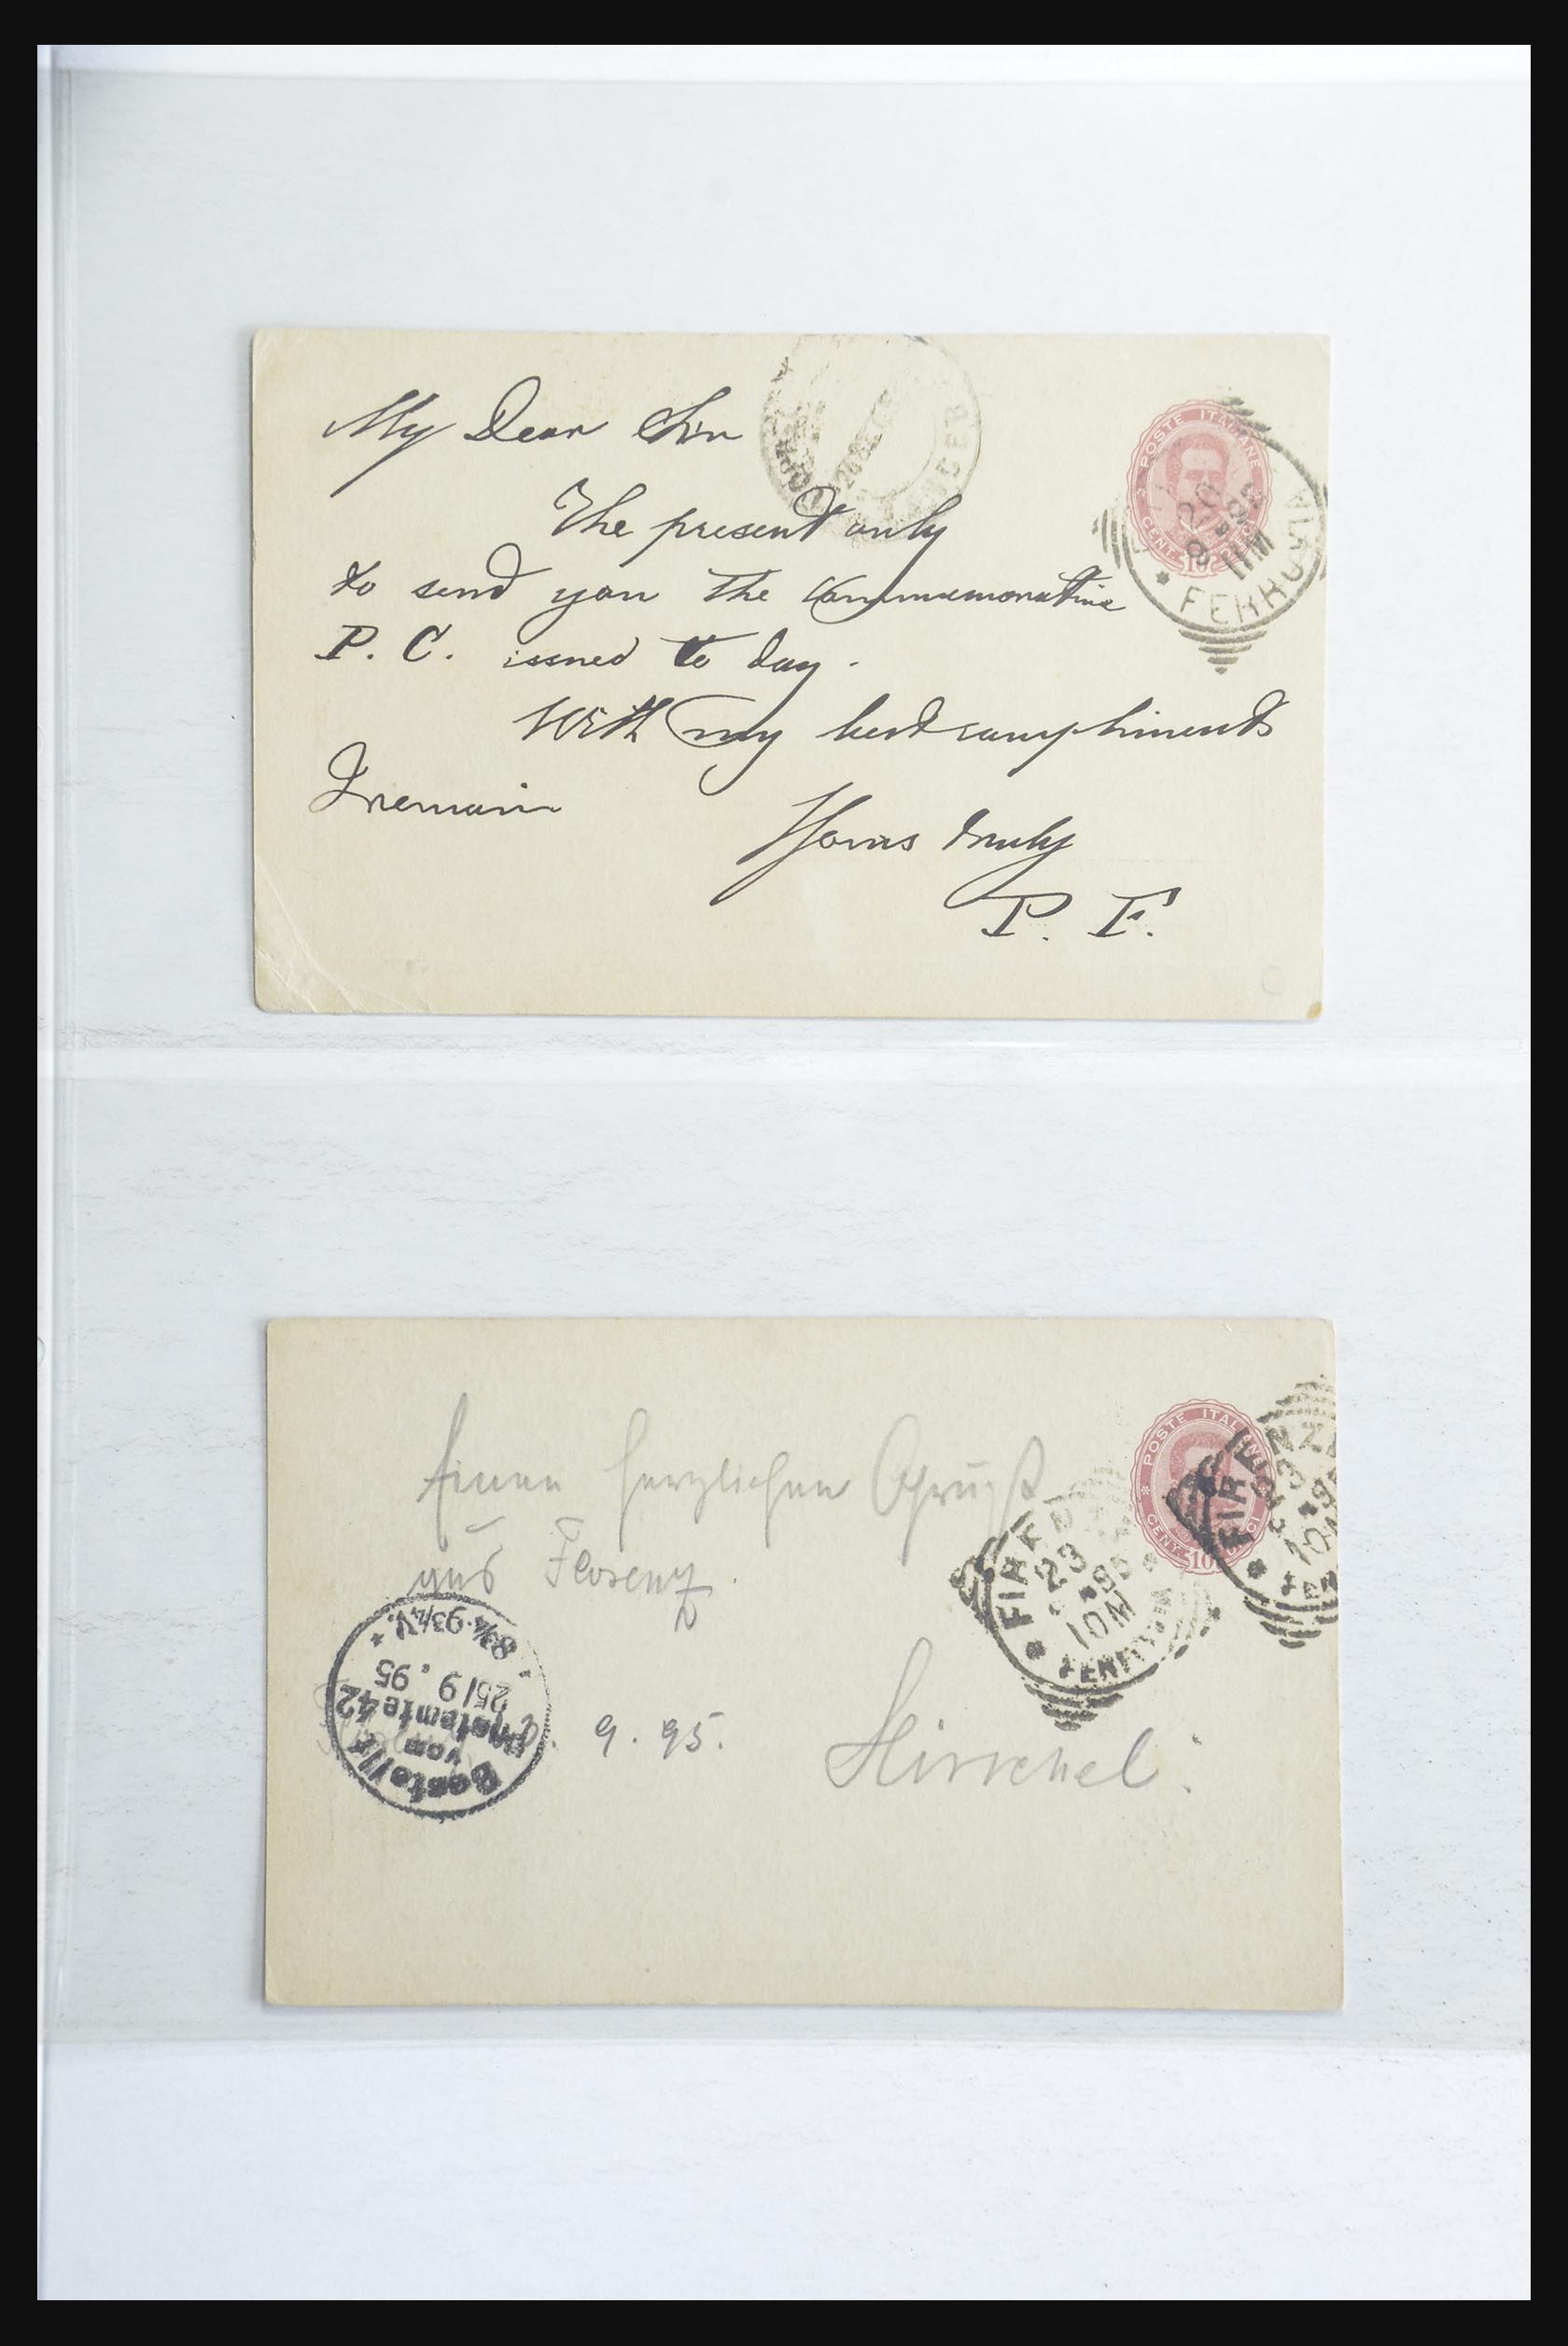 My Dear Sir
The present only
to send you the commemorative
P. C. issued to day.
With my best compliments
I remain
Yours truly
P. F.
POSTE ITALIANE
CENT. 10 DIECI
20
9-95
11M
FERROVIA
26 SET 95
Einen herzlichen Gruß
aus Florenz.
9. 95.
Hirschel.
POSTE ITALIANE
CENT. 10 DIECI
FIRENZE
23
9-95
10M
FERROVIA
FIRENZE
23
9-95
10M
FER
Bestellt
vom
Postamte 42
25/9.95
8¾-9¾V.